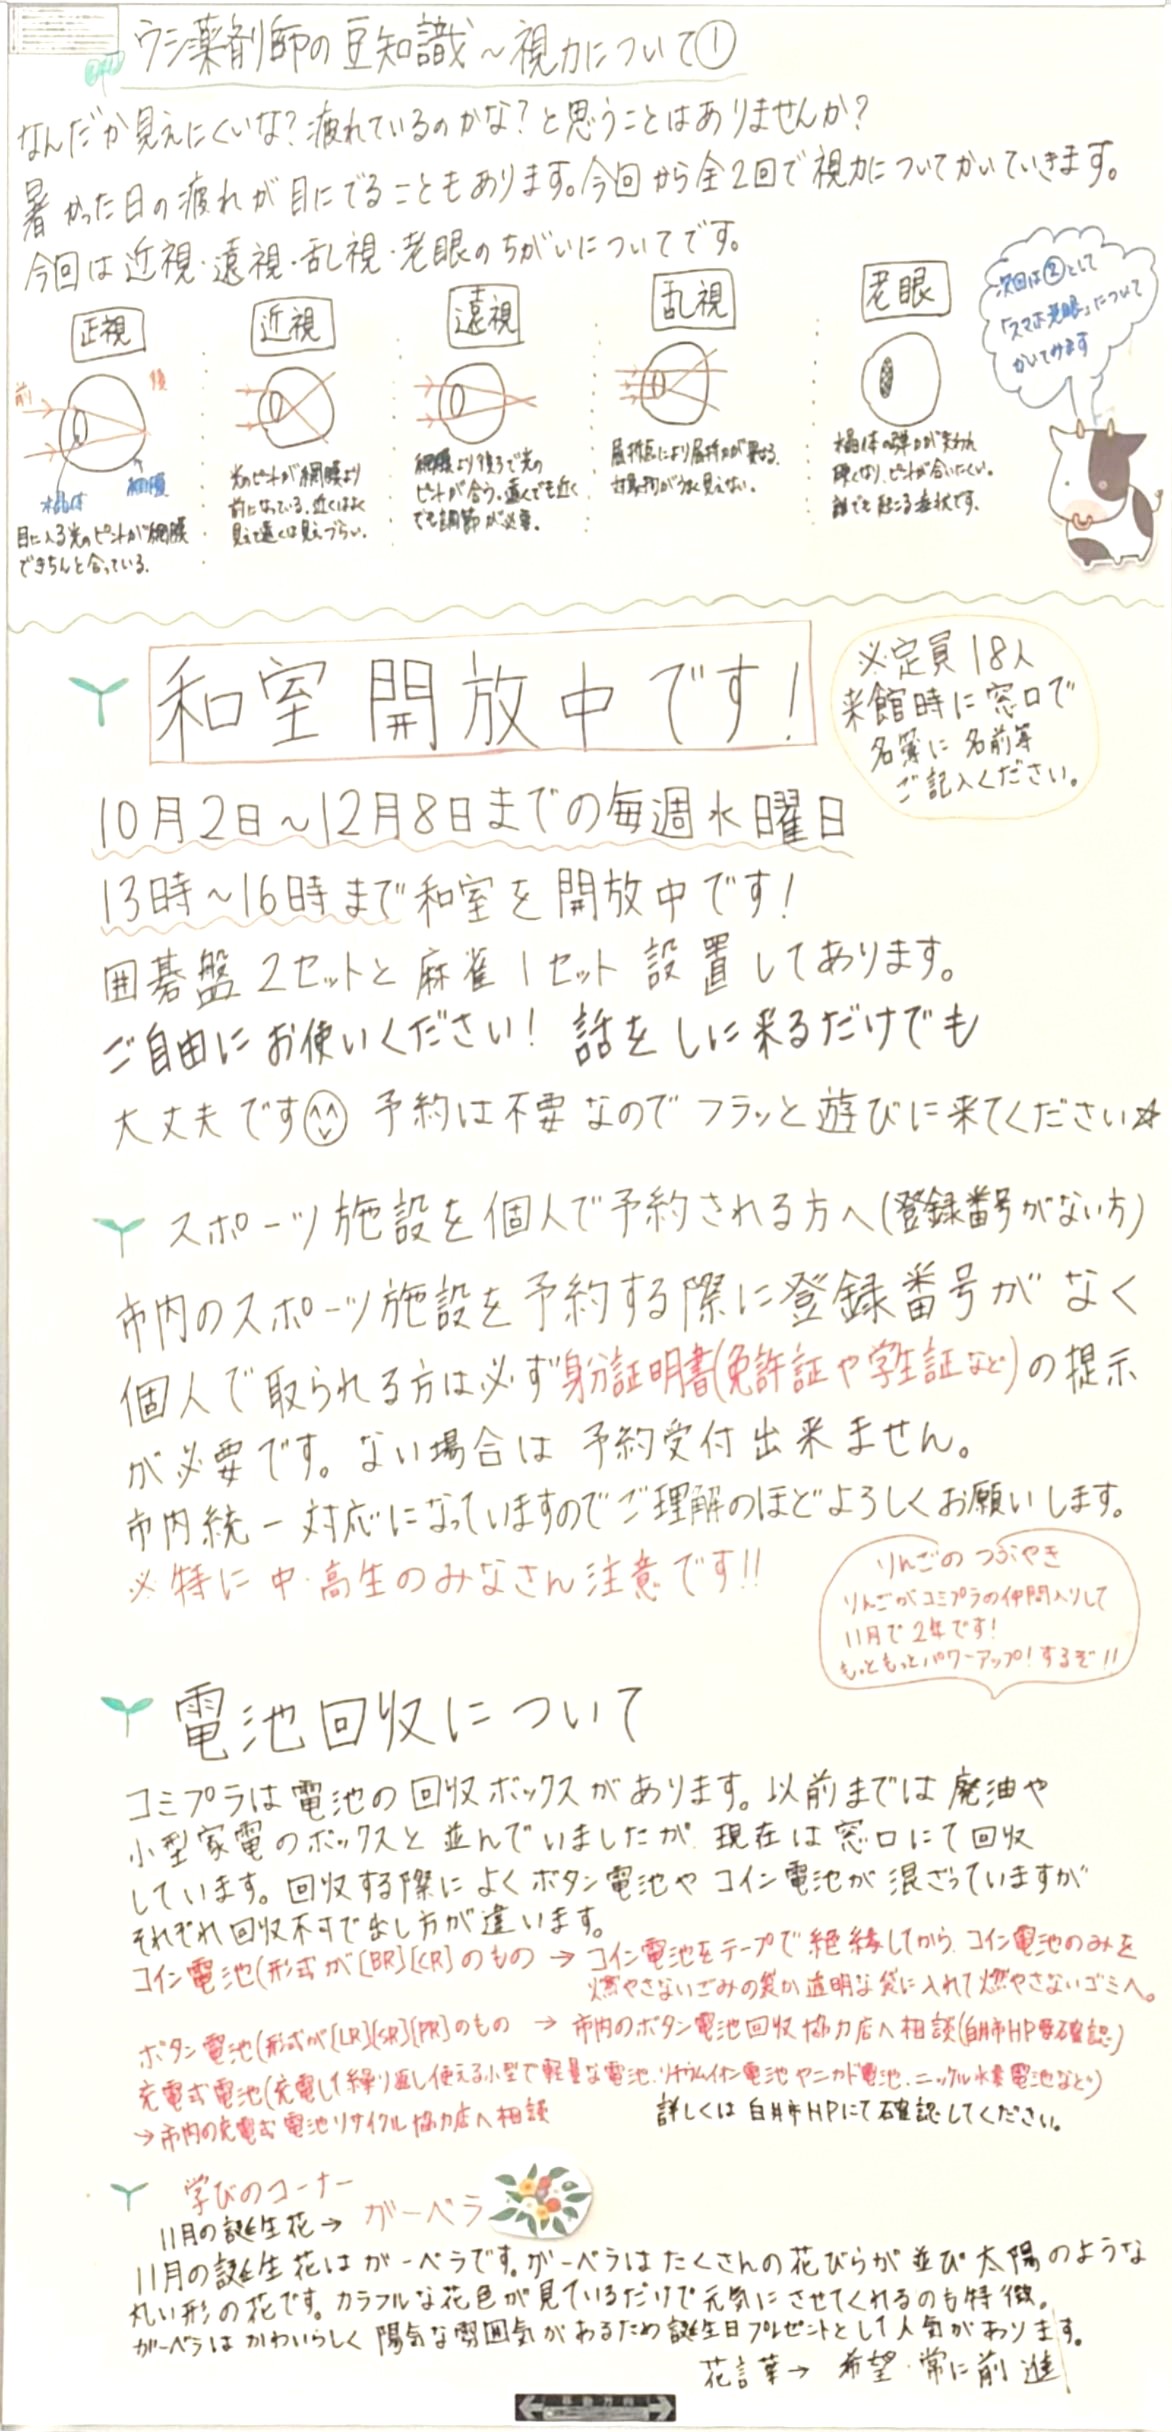 ウシ薬剤師の豆知識～視力について①
なんだか見えにくいな？疲れているのかな？と思うことはありませんか？
暑かった日の疲れが目にでることもあります。今回から全2回で視力についてかいていきます。
今回は近視・遠視・乱視・老眼のちがいについてです。
正視
前
後
水晶体
網膜
目に入る光のピントが網膜
できちんと合っている。
近視
光のピントが網膜より
前になっている。近くはよく
見えて遠くは見えづらい。
遠視
網膜より後ろで光の
ピントが合う。遠くでも近く
でも調節が必要。
乱視
屈折点により屈折力が異なる。
対象物がうまく見えない。
老眼
水晶体の弾力が失われ
硬くなり、ピントが合いにくい。
誰でも起こる症状です。
次回は②として
「スマホ老眼」について
かいてみます
和室開放中です！
※定員18人
来館時に窓口で
名簿に名前等
ご記入ください。
10月2日～12月8日までの毎週水曜日
13時～16時まで和室を開放中です！
囲碁盤2セットと麻雀1セット設置してあります。
ご自由にお使いください！話をしに来るだけでも
大丈夫です 予約は不要なのでフラッと遊びに来てください☆
スポーツ施設を個人で予約される方へ(登録番号がない方)
市内のスポーツ施設を予約する際に登録番号がなく
個人で取られる方は必ず身分証明書(免許証や学生証など)の提示
が必要です。ない場合は予約受付出来ません。
市内統一対応になっていますのでご理解のほどよろしくお願いします。
※特に中・高生のみなさん注意です!!
りんごのつぶやき
りんごがコミプラの仲間入りして
11月で2年です！
もっともっとパワーアップ！するぞ!!
電池回収について
コミプラは電池の回収ボックスがあります。以前までは廃油や
小型家電のボックスと並んでいましたが、現在は窓口にて回収
しています。回収する際によくボタン電池やコイン電池が混ざっていますが
それぞれ回収不可で出し方が違います。
コイン電池(形式が[BR][CR]のもの → コイン電池をテープで絶縁してから、コイン電池のみを
燃やさないごみの袋か透明な袋に入れて燃やさないゴミへ。
ボタン電池(形式が[LR][SR][PR]のもの → 市内のボタン電池回収協力店へ相談(白井市HP要確認)
充電式電池(充電して繰り返し使える小型で軽量な電池、リチウムイオン電池やニカド電池、ニッケル水素電池など)
→市内の充電式電池リサイクル協力店へ相談
詳しくは白井市HPにて確認してください。
学びのコーナー
11月の誕生花→ ガーベラ
11月の誕生花はガーベラです。ガーベラはたくさんの花びらが並び太陽のような
丸い形の花です。カラフルな花色が見ているだけで元気にさせてくれるのも特徴。
ガーベラはかわいらしく陽気な雰囲気があるため誕生日プレゼントとして人気があります。
花言葉→ 希望・常に前進
移動方向